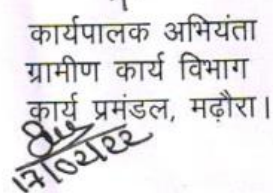 कार्यपालक अभियंता
ग्रामीण कार्य विभाग
कार्य प्रमंडल, मढ़ौरा।
17/02/22